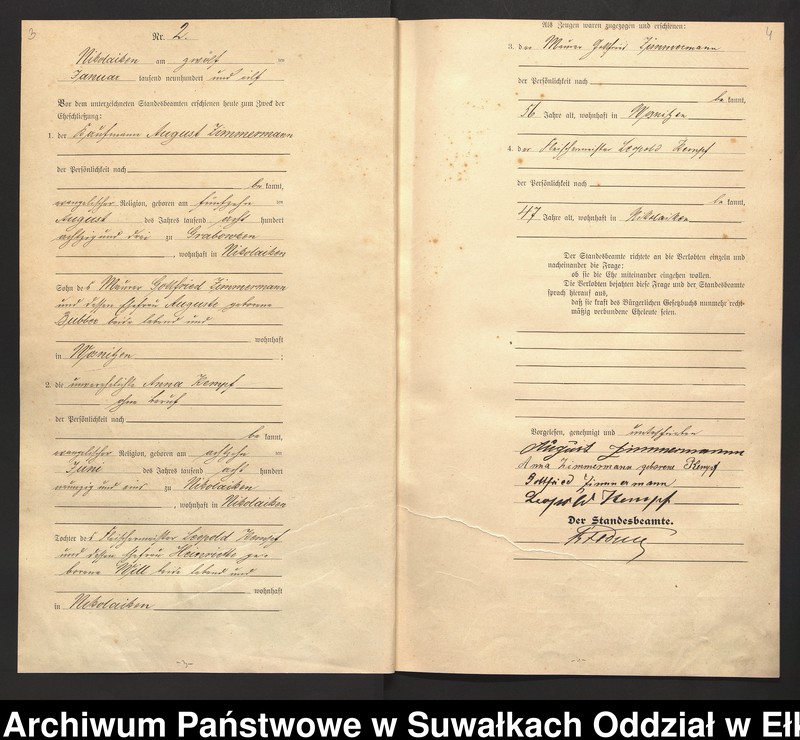 3
Nr. 2.
Nikolaiken am zwölf =
Januar tausend neunhundert und elf
Vor dem unterzeichneten Standesbeamten erschienen heute zum Zweck der
Eheschließung:
1. der Kaufmann August Zimmermann
der Persönlichkeit nach
be kannt,
evangelischer Religion, geboren am fünfzehn =
August des Jahres tausend acht hundert
achtzig und drei zu Grabowken
, wohnhaft in Nikolaiken
Sohn des Maurer Gottfried Zimmermann
und dessen Ehefrau Auguste geborene
beide lebend und
wohnhaft
in :
2. die unverehelichte Anna Kempf
ohne Beruf
der Persönlichkeit nach
be kannt,
evangelischer Religion, geboren am achtzehn =
Juni des Jahres tausend acht hundert
neunzig und eins zu Nikolaiken
, wohnhaft in Nikolaiken
Tochter des Fleischermeister Leopold Kempf
und dessen Ehefrau Heinriette ge=
borene Will beide lebend und
wohnhaft
in Nikolaiken
-3-
Als Zeugen waren zugezogen und erschienen:
4
3. der Maurer Gottfried Zimmermann
der Persönlichkeit nach
be kannt,
56 Jahre alt, wohnhaft in
4. der Fleischermeister Leopold Kempf
der Persönlichkeit nach
be kannt,
47 Jahre alt, wohnhaft in Nikolaiken
Der Standesbeamte richtete an die Verlobten einzeln und
nacheinander die Frage:
ob sie die Ehe miteinander eingehen wollen.
Die Verlobten bejahten diese Frage und der Standesbeamte
sprach hierauf aus,
daß sie kraft des Bürgerlichen Gesetzbuchs nunmehr recht-
mäßig verbundene Eheleute seien.
Vorgelesen, genehmigt und unterschrieben
August Zimmermann
Anna Zimmermann geborene Kempf
Gottfried Zimmermann
Leopold Kempf
Der Standesbeamte.
Archiwum Państwowe w Suwałkach Oddział w Ełk